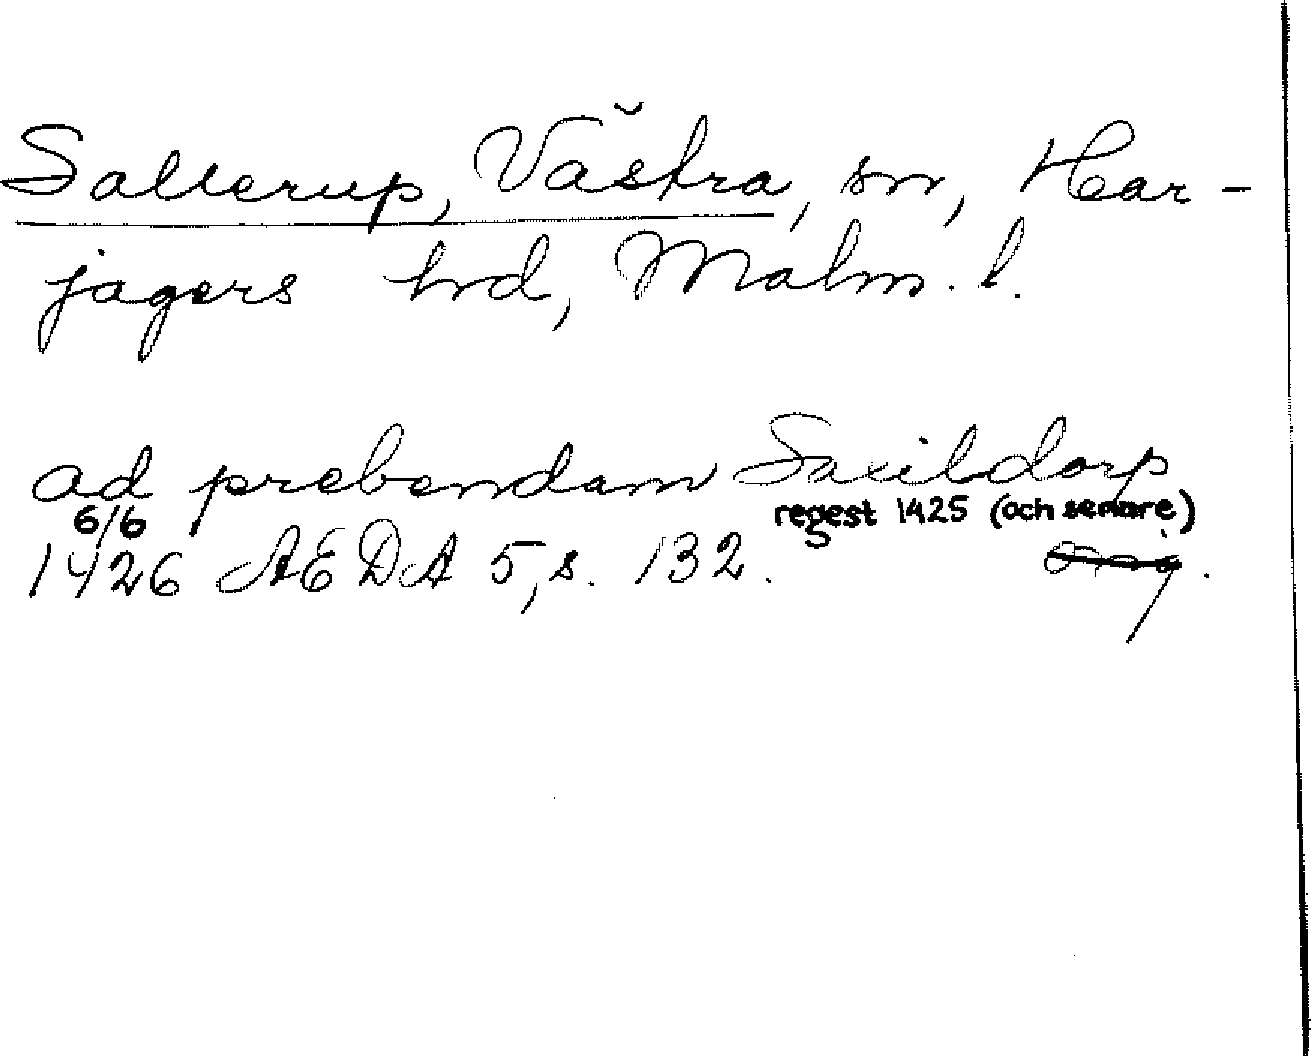 Sallerup, Västra, sn, Har-
jagers hd, Malm. l.
ad prebendam Saxildorp
6/6 regest 1425 (och senare)
1426 AEDA 5, s. 132.